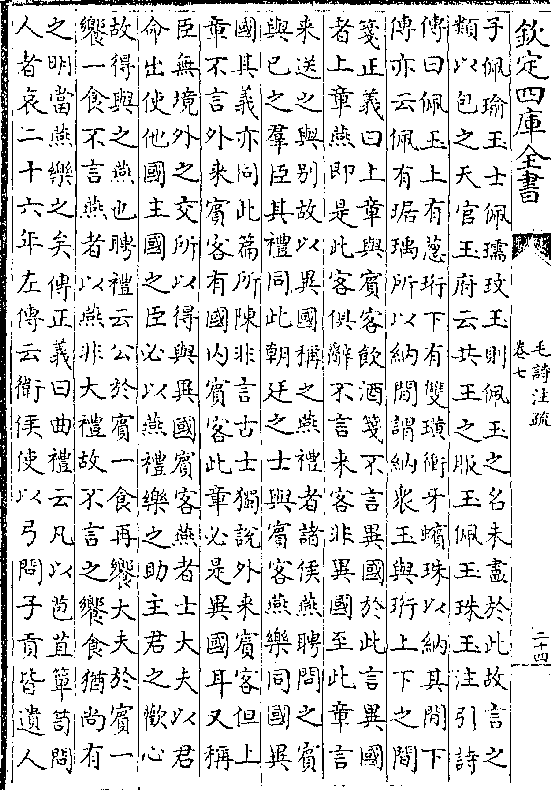 欽定四庫全書
毛詩注疏
卷七
二十四
子佩瑜玉士佩瓀玟玉則佩玉之名未盡於此故言之
類以包之天官玉府云共王之服玉佩玉珠玉注引詩
傳曰佩玉上有蔥珩下有雙璜衝牙蠙珠以納其間下
傳亦云佩有琚瑀所以納間謂納衆玉與珩上下之間
箋正義曰上章與賓客飲酒箋不言異國於此言異國
者上章燕即是此客俱辭不言来客非異國至此章言
来送之與别故以異國稱之燕禮者諸侯燕聘問之賓
與己之羣臣其禮同此朝廷之士與賓客燕樂同國異
國其義亦同此篇所陳非言古士獨說外来賓客但上
章不言外来賓客有國内賓客此章必是異國耳又稱
臣無境外之交所以得與異國賓客燕者士大夫以君
命出使他國主國之臣必以燕禮樂之助主君之歡心
故得與之燕也聘禮云公於賓一食再饗大夫於賓一
饗一食不言燕者以燕非大禮故不言之饗食猶尚有
之明當燕樂之矣傳正義曰曲禮云凡以苞苴簞笥問
人者哀二十六年左傳云衛侯使以弓問子貢皆遺人